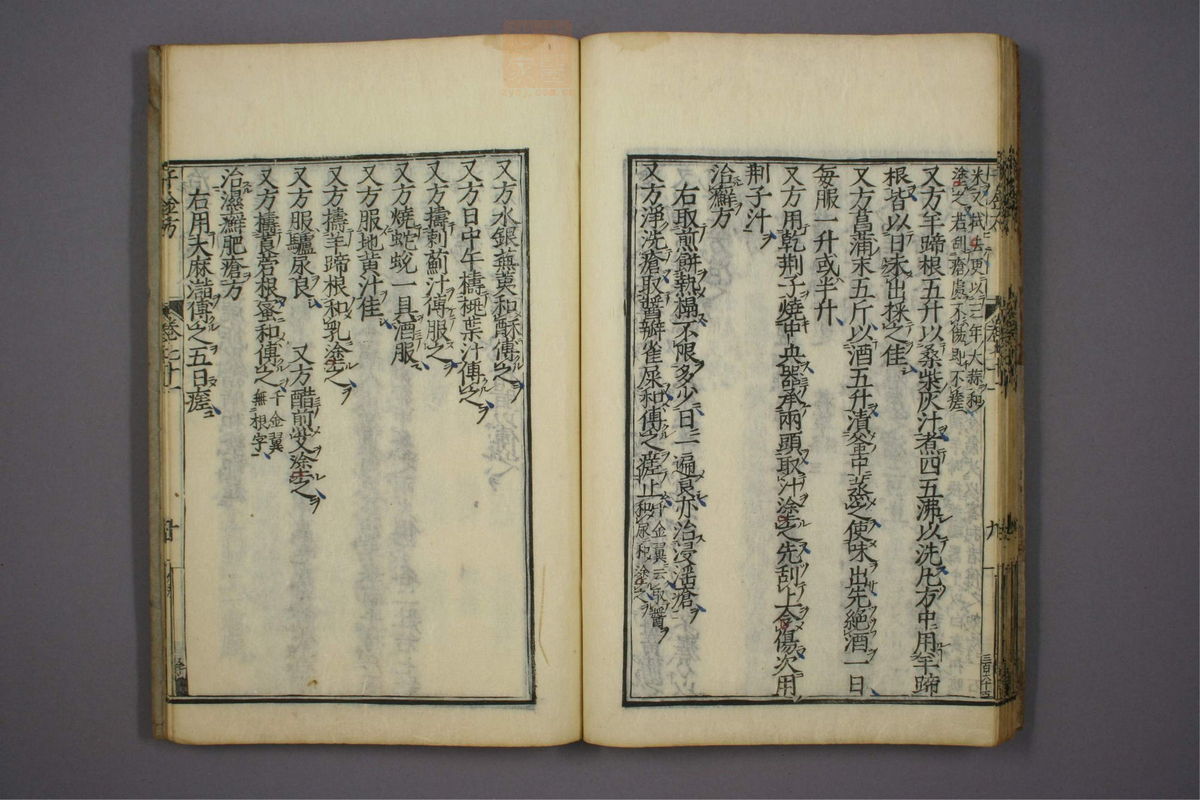 塗之若乱瘡處不傷即不瘥
又方羊蹄根五升以桑柴灰汁煮四五沸以洗㞮方中用羊蹄
根皆以日未出採之佳
又方菖蒲末五斤以酒五升漬釜中蒸之使味出先絶酒一日
每服一升或半升
又方用乾荆子燒中央器承兩頭取汁塗之先刮上令傷次用
荆子汁
治癬方
右取煎餅熱搨不限多少日一遍良亦治浸淫瘡
又方淨洗瘡取醬瓣雀屎和傅之瘥止千金翼云取醬
瓣尿和塗之
又方水銀蕪荑和酥傅之
又方日中午擣桃葉汁傅之
又方擣刺薊汁傅服之
又方燒蛇蛻一具酒服
又方服地黄汁佳
又方擣羊蹄根和乳塗之
又方服驢尿良 又方醋煎艾塗之
又方擣莨菪根蜜和傅之千金翼
無根字
治濕癬肥瘡方
右用大麻㵩傅之五日瘥
千金方
卷二十二